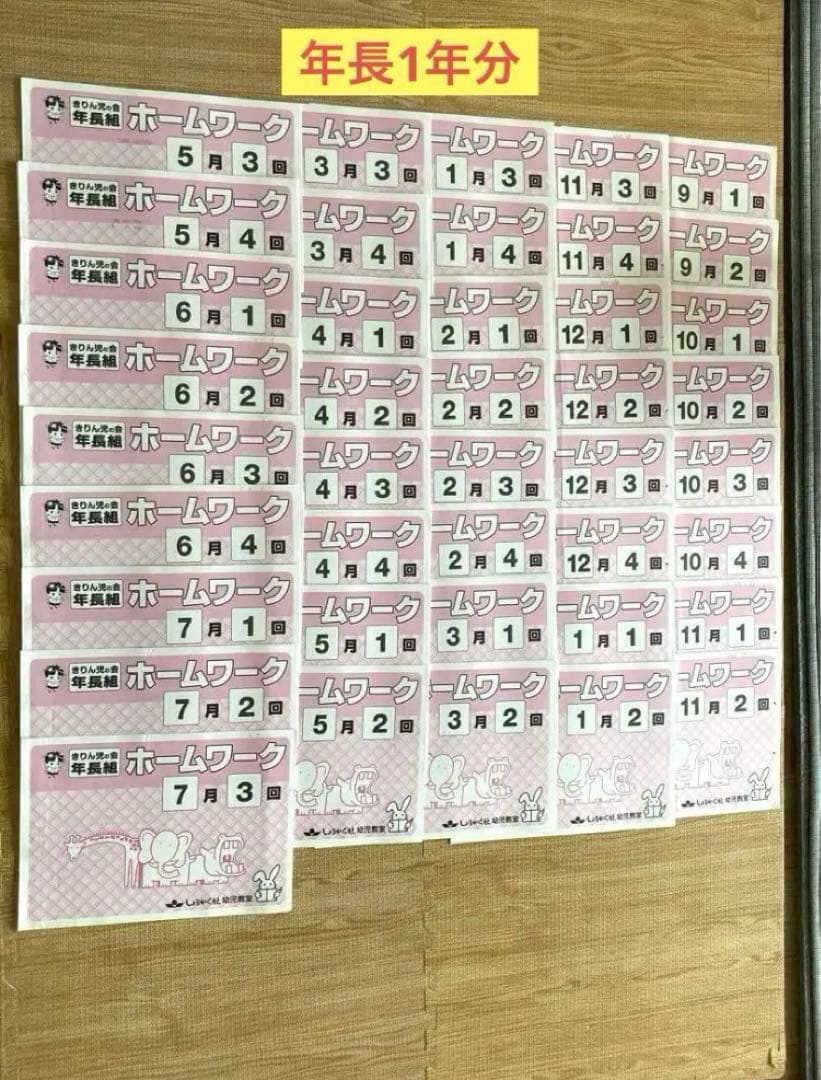 年長1年分
きりん児の会
年長組
ホームワーク
5月3回
きりん児の会
年長組
ホームワーク
5月4回
きりん児の会
年長組
ホームワーク
6月1回
きりん児の会
年長組
ホームワーク
6月2回
きりん児の会
年長組
ホームワーク
6月3回
きりん児の会
年長組
ホームワーク
6月4回
きりん児の会
年長組
ホームワーク
7月1回
きりん児の会
年長組
ホームワーク
7月2回
きりん児の会
年長組
ホームワーク
7月3回
しょうがく社 幼児教室
ームワーク
3月3回
ームワーク
3月4回
ームワーク
4月1回
ームワーク
4月2回
ームワーク
4月3回
ームワーク
4月4回
ームワーク
5月1回
ームワーク
5月2回
しょうがく社 幼児教室
ームワーク
1月3回
ームワーク
1月4回
ームワーク
2月1回
ームワーク
2月2回
ームワーク
2月3回
ームワーク
2月4回
ームワーク
3月1回
ームワーク
3月2回
しょうがく社 幼児教室
ームワーク
11月3回
ームワーク
11月4回
ームワーク
12月1回
ームワーク
12月2回
ームワーク
12月3回
ームワーク
12月4回
ームワーク
1月1回
ームワーク
1月2回
しょうがく社 幼児教室
ームワーク
9月1回
ームワーク
9月2回
ームワーク
10月1回
ームワーク
10月2回
ームワーク
10月3回
ームワーク
10月4回
ームワーク
11月1回
ームワーク
11月2回
しょうがく社 幼児教室